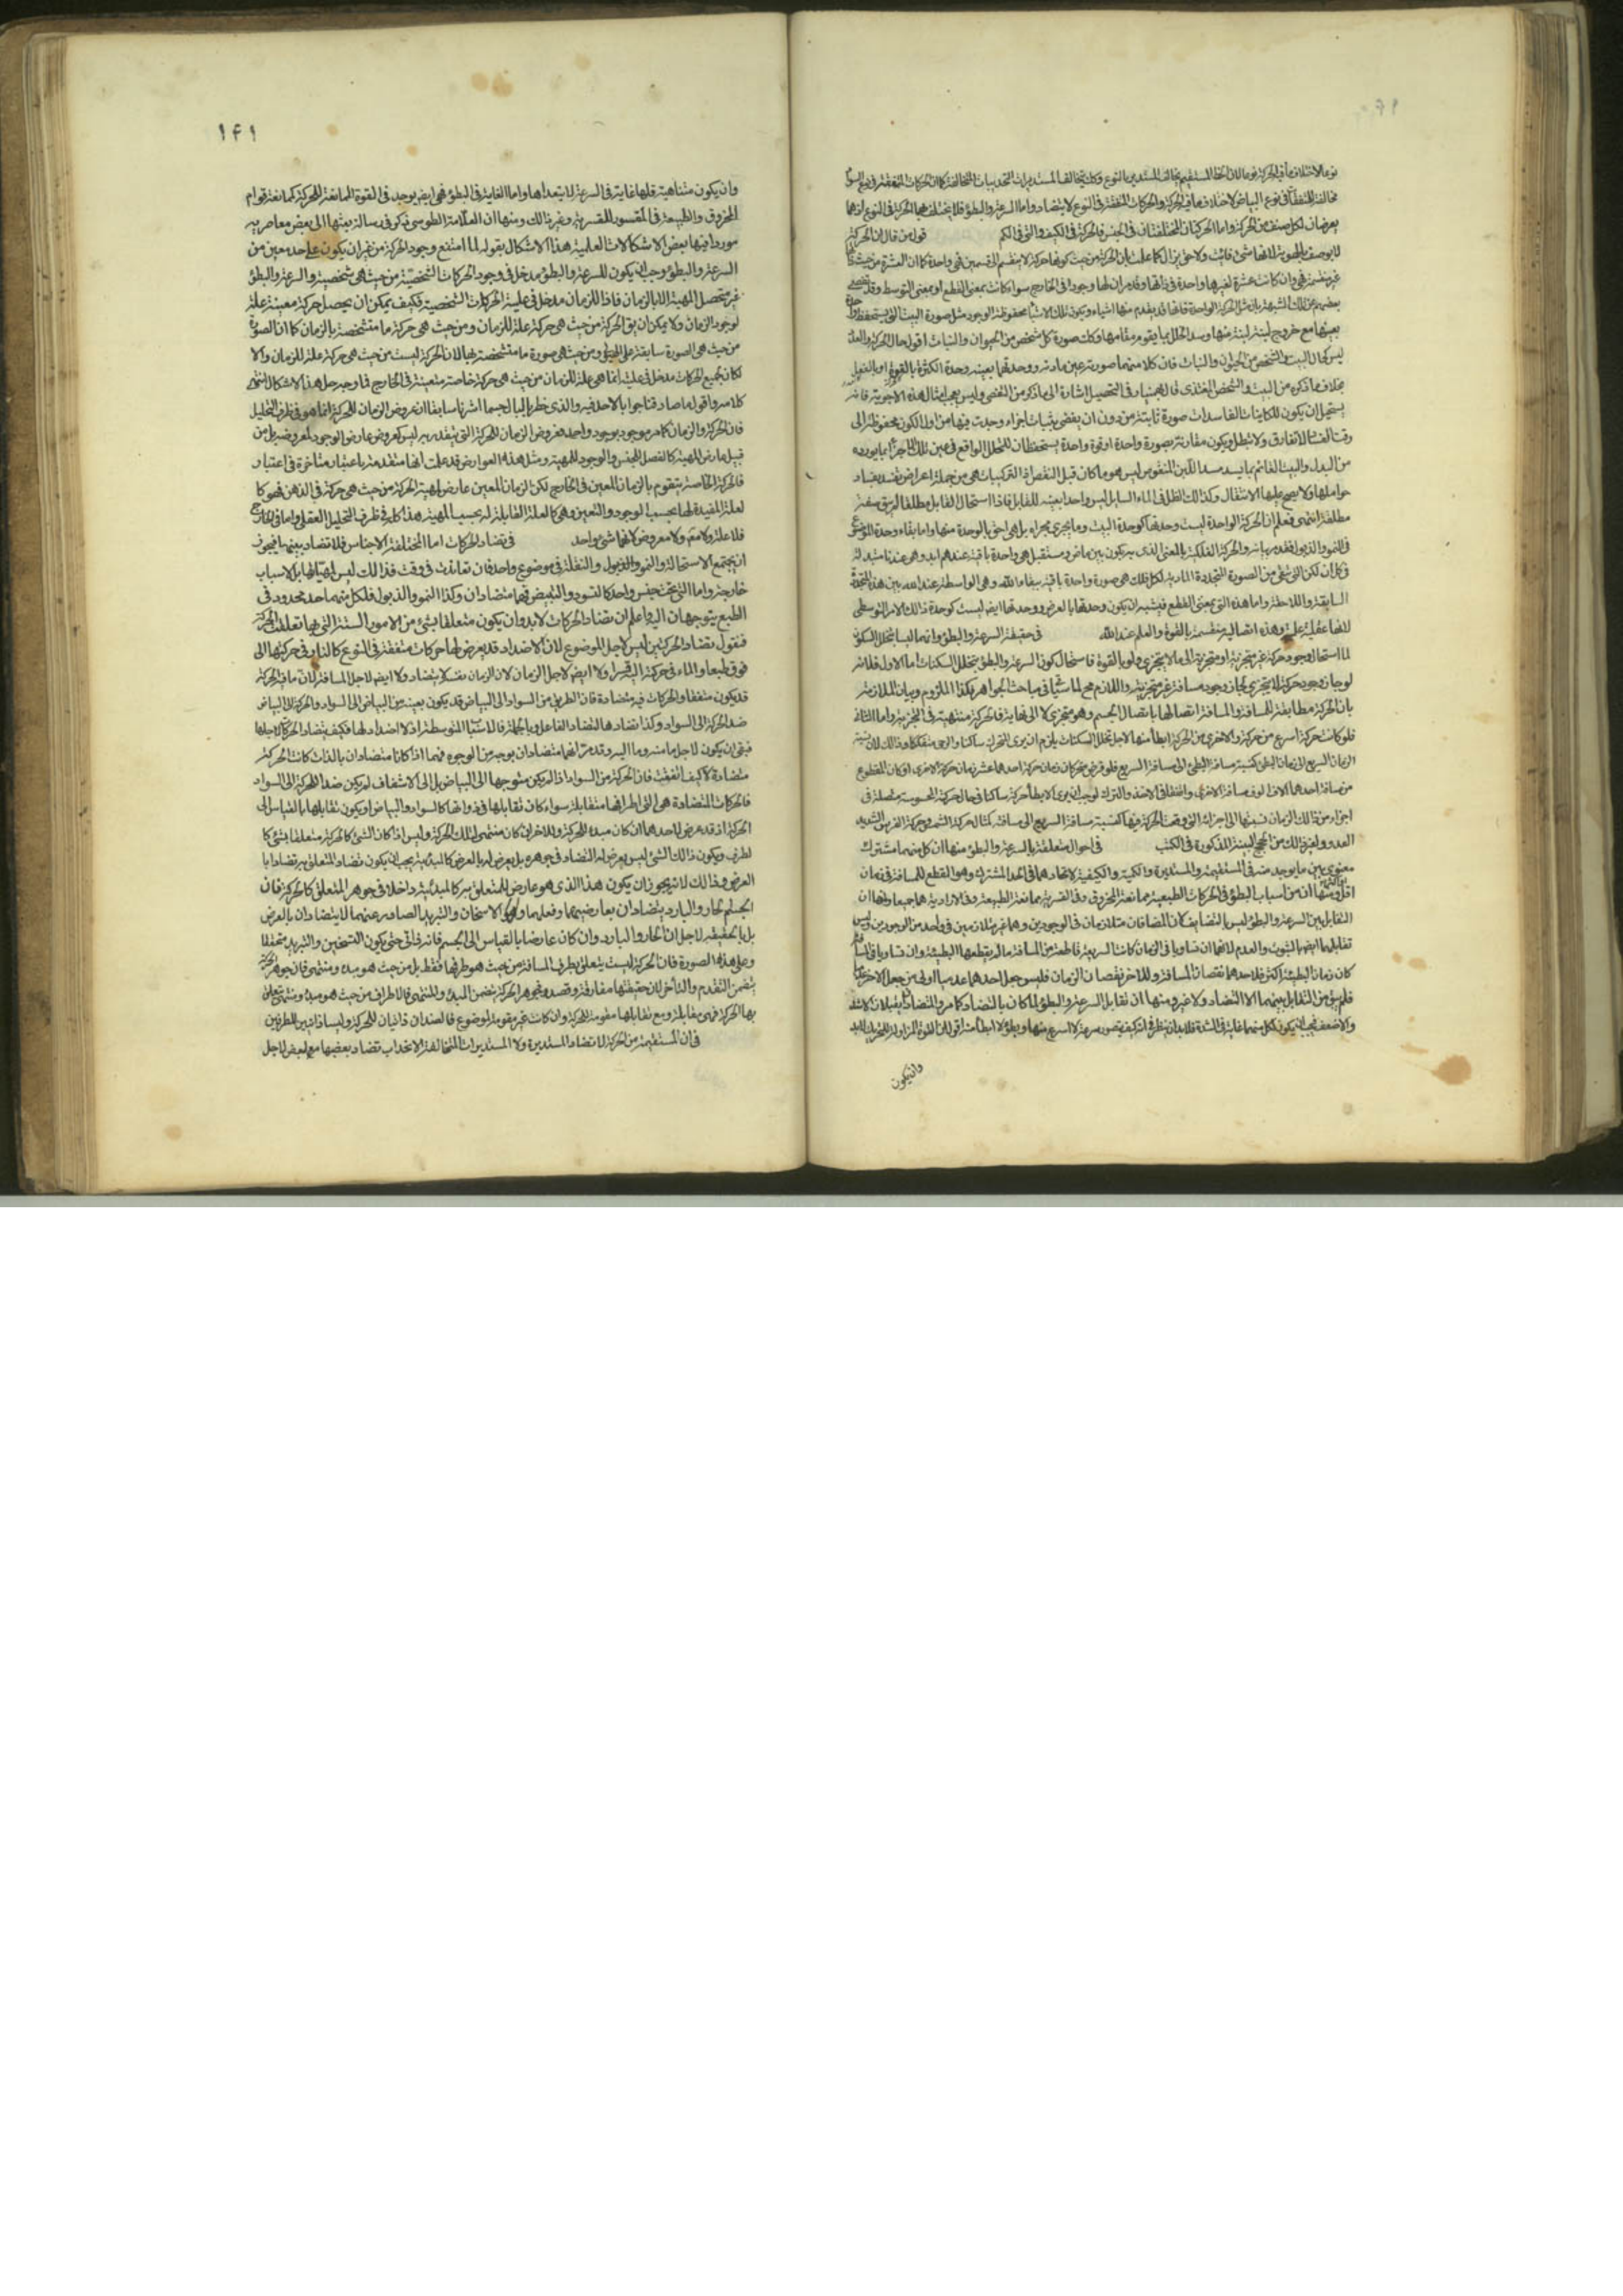 نوعا لاختلاف ما فيه الحركة نوعا لان الخط المستقيم يخالف المستدير بالنوع وكذلك يخالف المستديرات التحديبات المتخالفة كما ان الحركات المتفقة في نوع السواد
مخالفة للمتفقة في نوع البياض لاختلاف ما فيه الحركة والحركات المتفقة في النوع لا يتضاد واما السرعة والبطؤ فلا يختلف بهما الحركة في النوع لانهما
يعرضان لكل صنف من الحركة واما الحركتان المختلفتان في الجنس فالحركة في الكيف والتي في الكم قول من قال ان الحركة
لا يوصف بالهوية لانها شيء فائت ولاحق يزال كما علمت بان الحركة من حيث كونها حركة لا ينقسم الى قسمين فهي واحدة كما ان العشرة من حيث انها
غير منقسمة فهي وان كانت عشرة لغيرها واحدة في ذاتها وقد مر ان لها وجودا في الخارج سواء كانت بمعنى القطع او بمعنى التوسط وقد
بعضهم عن تلك الشبهة بان مثل الحركة الواحدة قائما قد يقدم منها اشياء ويكون تلك الاشياء محفوظة الوجود مثل صورة البيت التي يستحفظ واحدة
بعينها مع خروج لبنة لبنة منها وسد الخلل بما يقوم مقامها وكذلك صورة كل شخص من الحيوان والنبات اقول حال الحركة والعدد
ليس كحال البيت والشخص من الحيوان والنبات فان كلا منهما صورته عين مادته ووحدتهما بعينه وحدة الكثرة بالقوة او بالفعل
بخلاف ما ذكره من البيت والشخص المغتذى قال بهمنيار في التحصيل اشارة الى ما ذكر من النقض وليس يعجبنى امثال هذه الاجوبة فانه
يستحيل ان يكون للكاينات الفاسدات صورة ثابتة من دون ان يفضى بثبات اجزاء وجدت فيها من اول الكون محفوظة الى
وقت الفساد لا تفارق ولا تبطل ويكون مقارنة بصورة واحدة او قوة واحدة يستحفظان للخلل الواقع في عين تلك الاجزاء بما يورده
من البدل والبيت القائم بما يسد مسد اللبن المنقوص ليس هو ما كان قبل النقص اذ التركيبات هي من جملة اعراض تفسد بفساد
حواملها ولا يصح عليها الانتقال وكذلك الظل في الماء السايل ليس واحدا بعينه للقابل فاذا استحال القابل مطلقا لم يبق صفته
مطلقة انتهى فعلم ان الحركة الواحدة ليست وحدتها كوحدة البيت وما يجرى مجراه بل هي احق بالوحدة منها واما بقاء وحدة الموضوع
في النمو والذبول فقد مر بيانه والحركة الفلكية بالمعنى الذى به يكون بين ماض ومستقبل هي واحدة باقية عندهم ابدا وهي عندنا متبدلة
في كل ان لكن التي هي من الصورة المتجددة المادية لكل فلك هي صورة واحدة باقية ببقاء الله وهي الواسطة عند الله بين هذه المتجددة
السابقة واللاحقة واما هذه التي بمعنى القطع فيشبه ان يكون وحدتها بالعرض ووحدتها ايضا ليست كوحدة ذالك الامر التوسطى
لانها عقلية علية وهذه اتصالية منقسمة بالقوة والعلم عند الله في حقيقة السرعة والبطؤ وانهما ليسا بتخلل السكون
لما استحال وجود حركة غير متجزية او متجزية الى ما لا يتجزى ولو بالقوة فاستحال كون السرعة والبطؤ بتخلل السكنات اما الاول فلانه
لو جاز وجود حركة لا يتجزى لجاز وجود مسافة غير متجزية واللازم مح لما سيأتى في مباحث الجواهر فكذا الملزوم وبيان الملازمة
بان الحركة مطابقة للمسافة والمسافة اتصالها باتصال الجسم وهو متجزى لا الى نهاية فالحركة منتهية في التجزية واما الثانى
فلو كانت حركة اسرع من حركة والاخرى من الحركة ابطأ منها لاجل تخلل السكنات يلزم ان يرى المتحرك ساكنا والرحى متفككا وذالك لان نسبة
الزمان السريع الى زمان البطئ كنسبة مسافة البطئ الى مسافة السريع فلو فرض متحركان زمان حركة احدهما عشر زمان حركة الاخرى او كان المقطوع
من مسافة احدهما الاف الوف مسافة الاخرى واتفقا في الاخذ والترك لوجب ان يرى الابطأ حركة ساكنا في حال حركته المحسوسة متصلة في
اجزاء من ذالك الزمان نسبتها الى اجزائه التي وقعت الحركة فيها كنسبة مسافة السريع الى مسافته كمثال حركة الشمس وحركة الفرس الشديد
العدو ولغير ذلك من الحجج البينة المذكورة في الكتب في احوال متعلقة بالسرعة والبطؤ منها ان كل منهما مشترك
معنوى بين ما يوجد منه في المستقيمة والمستديرة والكمية والكيفية لاتحادهما في الحد المشترك وهو القطع للمسافة في زمان
اقل ومنها ان من اسباب البطؤ في الحركات الطبيعية ممانعة المخروق وفى القسرية ممانعة الطبيعة وفى الارادية هما جميعا ومنها ان
التقابل بين السرعة والبطؤ ليس بالتضايف كان المضافان متلازمان في الوجودين وهما غير متلازمين في واحد من الوجودين وليس
تقابلهما ايضا بالثبوت والعدم لانهما ان تساويا في الزمان كانت السريعة قاطعة من المسافة ما لم يقطعها البطيئة وان تساويا في المسافة
كان زمان البطيئة اكثر فلاحدهما نقصان المسافة وللاخر نقصان الزمان فليس جعل احدهما عدميا اولى من جعل الاخر عدميا
فلم يبق من التقابل بينهما الا التضاد ولا غير ومنها ان تقابل السرعة والبطؤ لما كان بالتضاد كما مر والمتضادان يقبلان الاشد
والاضعف فيجب ان يكون لكل منهما غاية في الشدة فلابد ان ينظر في انه كيف يتصور سرعة لا اسرع منها وبطؤ لا ابطأ منه اقول لان القوة المزاولة للتحريك لابد
وان يكون
١٤١
وان يكون متناهية فلها غاية في السرعة لا يتعداها واما الغاية في البطؤ فهي ايضا يوجد في القوة الممانعة للحركة كممانعة قوام
المخروق والطبيعة في المقسور للقسرية وغير ذالك ومنها ان العلامة الطوسى ذكر في رسالة بعثها الى بعض معاصريه
موردا فيها بعض الاشكالات العلمية هذا الاشكال بقوله لما امتنع وجود الحركة من غير ان يكون على حد معين من
السرعة والبطؤ وجب ان يكون للسرعة والبطؤ مدخل في وجود الحركات الشخصية من حيث هي شخصية والسرعة والبطؤ
غير متحصل المهية الا بالزمان فاذا للزمان مدخل في علية الحركات الشخصية فكيف يمكن ان يحصل حركة معينة علة
لوجود الزمان ولا يمكن ان يق الحركة من حيث هي حركة علة للزمان ومن حيث هي حركة ما متشخصة بالزمان كما ان الصورة
من حيث هي الصورة سابقة على الهيولى ومن حيث هي صورة ما متشخصة بها لان الحركة ليست من حيث هي حركة علة للزمان والا
لكان لجميع الحركات مدخل في علية انما هي علة للزمان من حيث هي حركة خاصة متعينة في الخارج فما وجه حل هذا الاشكال انتهى
كلامه واقول ما صادفنا جوابا لاحد فيه والذى خطر بالبال حسبما اشرنا سابقا ان عروض الزمان للحركة انما هو في ظرف التحليل
فان الحركة والزمان كما مر موجود بوجود واحد فعروض الزمان للحركة التي يتقدر به ليس كعروض عارض الوجود لمعروضه بل من
قبيل عارض المهية كالفصل للجنس والوجود للمهية ومثل هذه العوارض قد علمت انها متقدمة باعتبار متاخرة في اعتبار
فالحركة الخاصة يتقوم بالزمان المعين في الخارج لكن الزمان المعين عارض لمهية الحركة من حيث هي حركة في الذهن فهو كا
لعلة المفيدة لها بحسب الوجود والتعين وهي كالعلة القابلة له بحسب المهية هذا كله في ظرف التحليل العقلى واما في الخارج
فلا علة ولا معلول ولا عارض ولا معروض لانهما شيء واحد في تضاد الحركات اما المختلفة الاجناس فلا تضاد بينهما فيجوز
ان يجتمع الاستحالة والنمو والذبول والنقلة في موضوع واحد فان تعاندت في وقت فذالك ليس لمهياتها بل لاسباب
خارجة واما التي تحت جنس واحد كالتسود والتبيض فهما متضادان وكذا النمو والذبول فلكل منهما حد محدود في
الطبع يتوجهان اليه واعلم ان تضاد الحركات لابد وان يكون متعلقا بشئ من الامور الستة التي بها تعلقت الحركة
فنقول تضاد الحركتين ليس لاجل الموضوع لان الاضداد قد يعرض لها حركات متفقة في النوع كالنار في حركتها الى
فوق طبعا والماء في حركته اليه قسرا ولا ايضا لاجل الزمان لان الزمان نفسه لا يتضاد ولا ايضا لاجل المسافة لان ما فيه الحركة
قد يكون متفقا والحركات فيه متضادة فان الطريق من السواد الى البياض قد يكون بعينه من البياض الى السواد والحركة الى البياض
ضد الحركة الى السواد وكذا تضادها لتضاد الفاعل وبالجملة فالاشياء المتوسطة اذ لا اضداد لها فكيف يتضاد الحركة لاجلها
فبقى ان يكون لاجل ما منه وما اليه وقد مر انهما متضادان بوجه من الوجوه فهما اذا كانا متضادان بالذات كانت الحركة
متضادة لا كيف اتفقت فان الحركة من السواد اذا لم يكن متوجها الى البياض بل الى الاشفاف لم يكن ضدا للحركة الى السواد
فالحركات المتضادة هي التي اطرافها متقابلة سواء كان تقابلها في ذواتها كالسواد والبياض او يكون تقابلها بالقياس الى
الحركة اذ قد عرض لاحدهما ان كان مبدء للحركة وللاخر ان كان منتهى لتلك الحركة وليس اذا كان الشئ كالحركة متعلقا بشئ كا
لطرف ويكون ذالك الشئ ليس يعرض له التضاد في جوهره بل يعرض له بالعرض كالمبدئية يجب ان يكون تضاد المتعلق به تضادا با
لعرض وذالك لانه يجوز ان يكون هذا الذى هو عارض للمتعلق به كالمبدئية داخلا في جوهر المتعلق كالحركة فان
الجسم الحار والبارد يتضادان بعارضيهما وفعلهما وهو الاسخان والتبريد الصادر عنهما لا يتضادان بالعرض
بل بالحقيقة لاجل ان الحار والبارد وان كان عارضا بالقياس الى الجسم فانه ذاتى حتى يكون التسخين والتبريد متحققا
وعلى هذا الصورة فان الحركة ليست يتعلق بطرف المسافة من حيث هو طرفها فقط بل من حيث هو مبدء ومنتهى فان جوهر الحركة
يتضمن التقدم والتأخر لان حقيقتها مفارقة وقصد فجوهر الحركة يتضمن المبدء والمنتهى فالاطراف من حيث هو مبدء ومنتهى تتعلق
بها الحركة فهى متقابلة ومع تقابلها مقومة للحركة وان كانت غير مقومة لموضوع فالضدان ذاتيان للحركة وليسا ذاتيين للطرفين
في ان المستقيمة من الحركة لا تضاد المستديرة ولا المستديرات المتخالفة الانحداب تضاد بعضها مع بعض لاجل